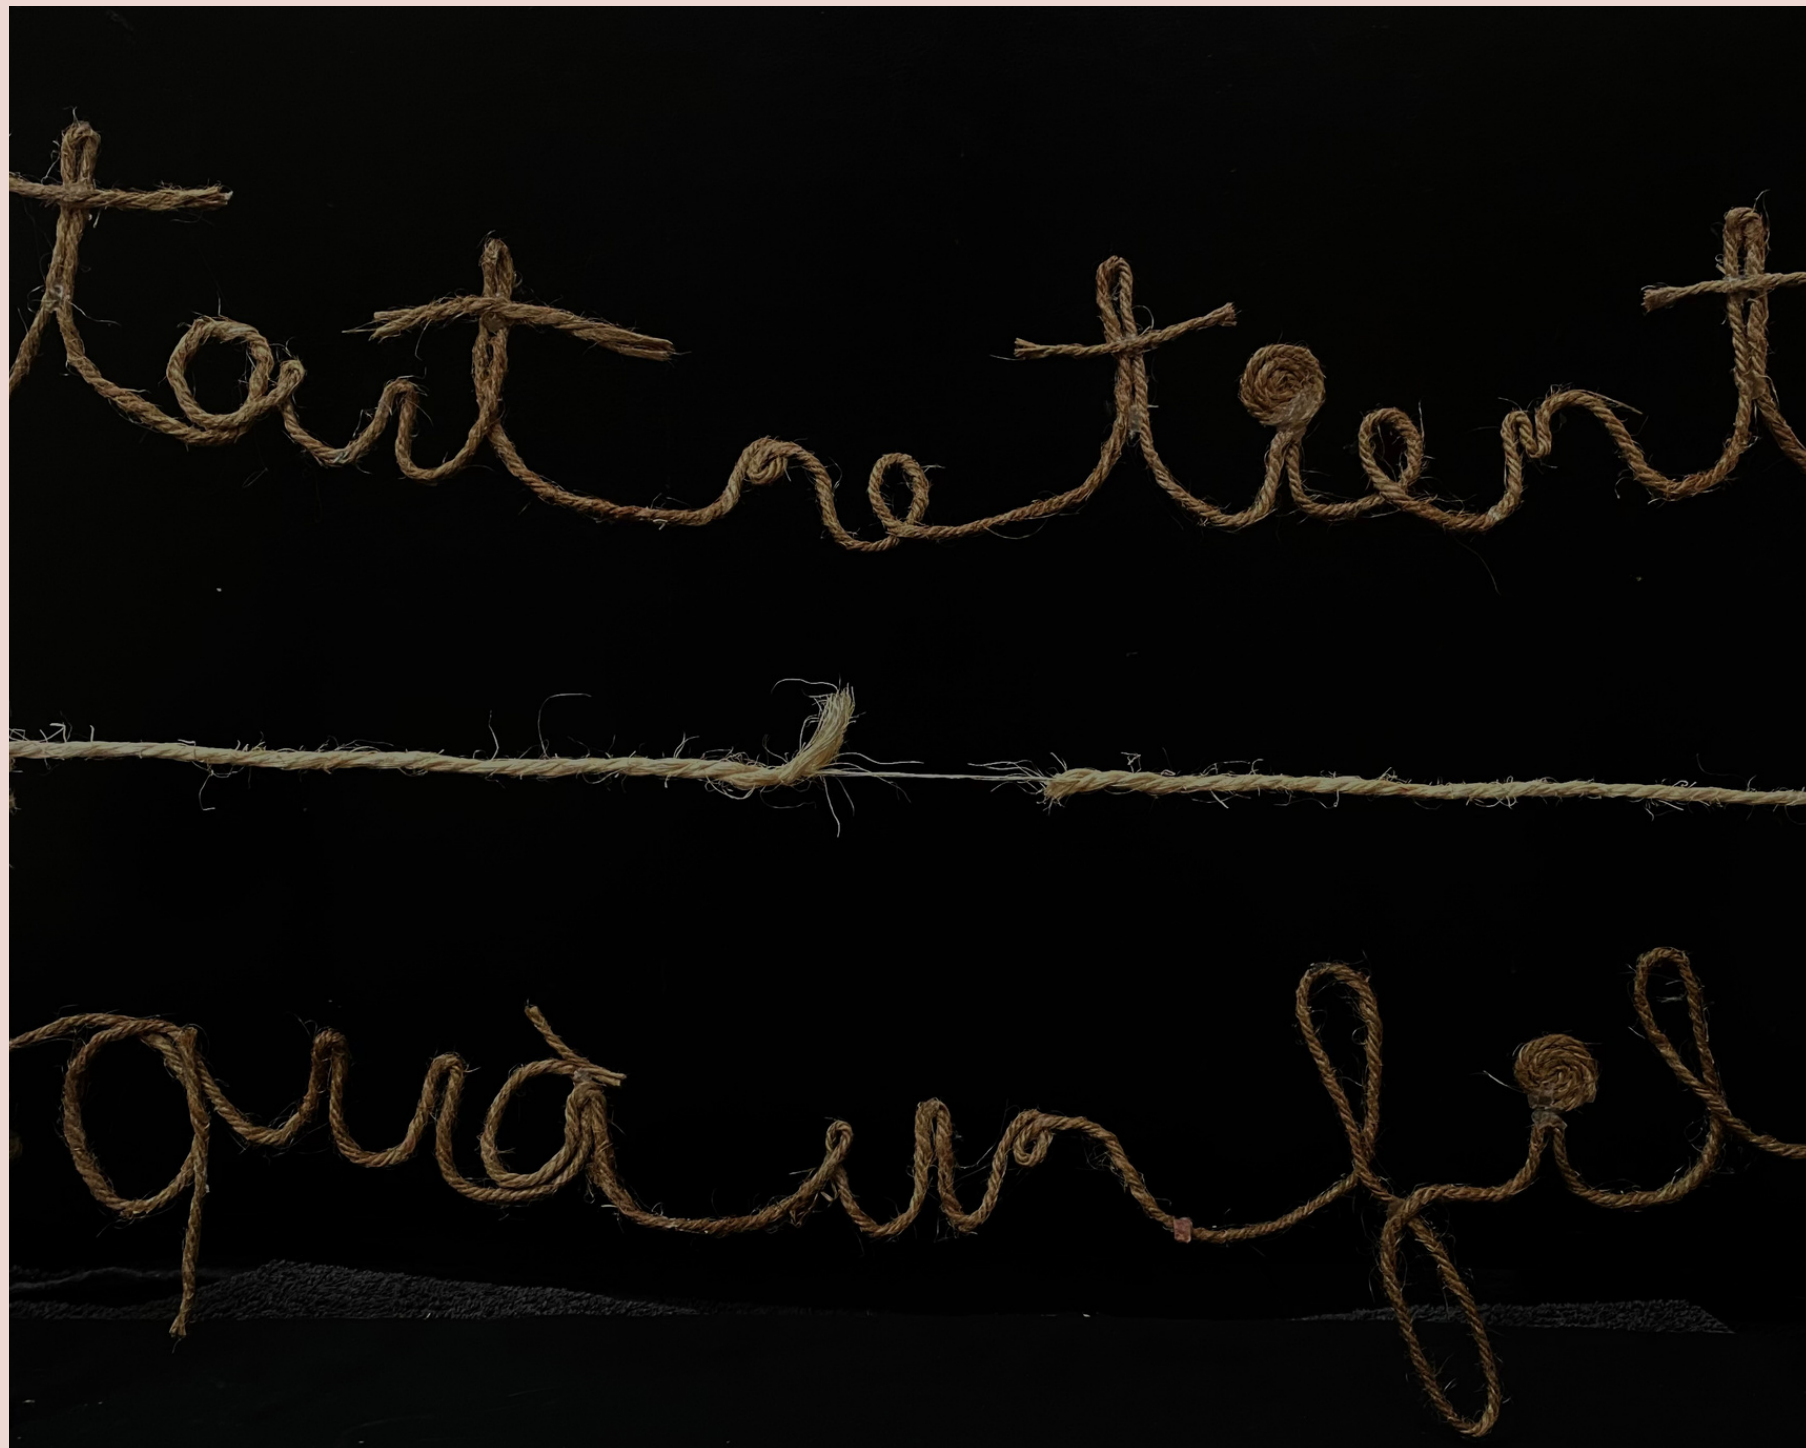 tout ne tient
qu'à un fil